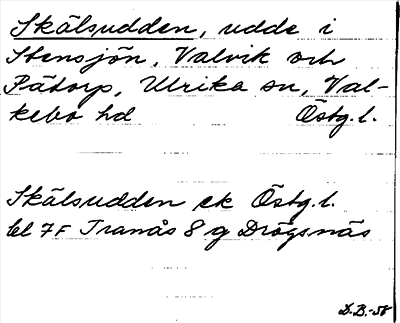 Skälsudden, udde i
Stensjön, Valvik och
Pätorp, Ulrika sn, Val-
kebo hd Östg.l.
Skälsudden ek Östg.l.
bl 7F Tranås 8 g Drögsnäs
D.B.-58